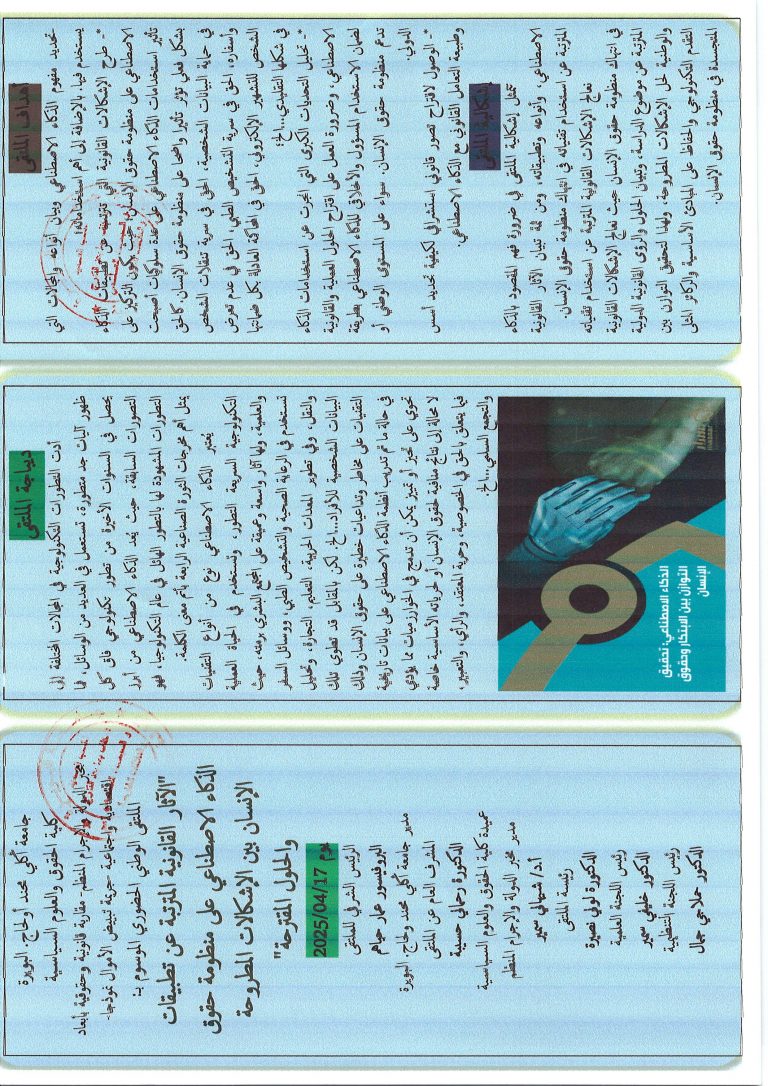 جامعة آكلي محند أولحاج البويرة
كلية الحقوق والعلوم السياسية
مخبر الدولة والاجرام المنظم: مقاربة قانونية وحقوقية بأبعاد
اقتصادية واجتماعية جريمة تبييض الأموال نموذجا-
الملتقى الوطني الحضوري الموسوم بـ:
"الآثار القانونية المترتبة عن تطبيقات
الذكاء الاصطناعي على منظومة حقوق
الإنسان بين الإشكالات المطروحة
والحلول المقترحة"
يوم 2025/04/17
الرئيس الشرفي للملتقى
البروفيسور عمار حياهم
مدير جامعة آكلي محند ولحاج- البويرة
المشرف العام عن الملتقى
الدكتورة رحماني حسيبة
عميدة كلية الحقوق والعلوم السياسية
مدير مخبر الدولة والاجرام المنظم
أ.د/ شيهاني سمير
رئيسة الملتقى
الدكتورة لوني نصيرة
رئيس اللجنة العلمية
الدكتور خليفي سمير
رئيس اللجنة التنظيمية
الدكتور حملاجي جمال
ديباجة الملتقى
أدت التطورات التكنولوجية في المجالات المختلفة إلى
ظهور آليات جد متطورة، تستعمل في العديد من الوسائل، فما
يحصل في السنوات الأخيرة من تطور تكنولوجي فاق كل
التصورات السابقة، حيث يعد الذكاء الاصطناعي من أبرز
التطورات المشهودة لها بالتطور الهائل في عالم التكنولوجيا، فهو
يمثل أهم مخرجات الثورة الصناعية الرابعة بأتم معنى الكلمة.
يعتبر الذكاء الاصطناعي نوع من أنواع التقنيات
التكنولوجية السريعة التطور، وتستخدم في الحياة العملية
والعلمية، ولها آثار واسعة وعميقة على المجتمع البشري برمته، حيث
تستخدم في الرعاية الصحية والتشخيص الطبي، ووسائل السفر
والنقل، وفي تطوير المعدات الحربية، التعليم، التجارة، وتحليل
البيانات الشخصية للأفراد...الخ. لكن بالمقابل قد تطوي تلك
التقنيات على مخاطر وتداعيات خطيرة على حقوق الإنسان وذلك
في حالة ما تم تدريب أنظمة الذكاء الاصطناعي على بيانات تاريخية
تحوي على تحيز أو تمييز يمكن أن تدمج في الخوارزميات مما يؤدي
لا محالة إلى نتائج منافية لحقوق الإنسان أو حرياته الأساسية خاصة
فيما يتعلق بالحق في الخصوصية، وحرية المعتقد، والرأي، والتعبير،
والتجمع السلمي...الخ
الذكاء الاصطناعي: تحقيق
التوازن بين الابتكار وحقوق
الإنسان
أهداف الملتقى
تحديد مفهوم الذكاء الاصطناعي وبيان أنواعه والمجالات التي
يستخدم فيها، بالإضافة إلى أهم استخداماته؛
- طرح الإشكالات القانونية التي تترتب عن تطبيقات الذكاء
الاصطناعي على منظومة حقوق الإنسان، حيث يكون التركيز على
تأثير استخدامات الذكاء الاصطناعي على عدة سلوكيات أصبحت
بشكل فعلي تؤثر تأثيرا واضحا على منظومة حقوق الإنسان، كالحق
في حماية البيانات الشخصية، الحق في سرية تنقلات الشخص
وأسفاره، الحق في سرية التشخيص الطبي، الحق في عدم تعرض
الشخص للتشهير الإلكتروني، الحق في المحاكمة العادلة بكل ضماناتها
في شكلها التقليدي...الخ؛
- تحليل التحديات الكبرى التي انجرت عن استخدامات الذكاء
الاصطناعي، وضرورة العمل على اقتراح الحلول العملية والقانونية
لضمان الاستخدام المسؤول والأخلاقي للذكاء الاصطناعي بطريقة
تدعم منظومة حقوق الإنسان، سواء على المستوى الوطني أو
الدولي.
- الوصول لاقتراح تصور قانوني استشرافي لكيفية تحديد أسس
وطبيعة التعامل القانوني مع الذكاء الاصطناعي.
إشكالية الملتقى
تتمثل إشكالية الملتقى في ضرورة فهم المقصود بالذكاء
الاصطناعي، وأنواعه وتطبيقاته، ومن ثمة تبيان الآثار القانونية
المترتبة عن استخدام تقنياته في انتهاك منظومة حقوق الإنسان.
تعالج الإشكالات القانونية المترتبة عن استخدام تقنياته
في انتهاك منظومة حقوق الإنسان حيث تعالج الإشكالات القانونية
المترتبة عن موضوع الدراسة، وتبيان الحلول والرؤى القانونية الدولية
والوطنية لحل الإشكالات المطروحة، ولهذا لتحقيق التوازن بين
التقدم التكنولوجي والحفاظ على المبادئ الأساسية والركائز المثلى
المتجسدة في منظومة حقوق الإنسان.